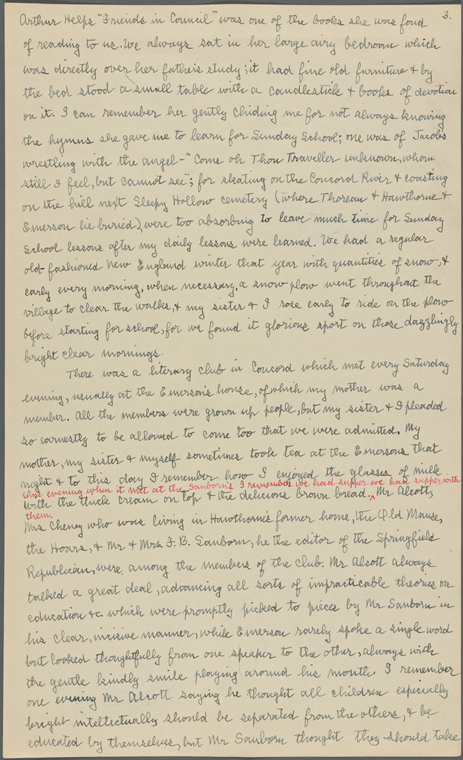 3.
Arthur Helps "Friends in Council" was one of the books she was fond
of reading to us. We always sat in her large airy bedroom which
was directly over her father's study; it had fine old furniture & by
the bed stood a small table with a candlestick & books of devotion
on it. I can remember her gently chiding me for not always knowing
the hymns she gave me to learn for Sunday School; one was of Jacob's
wrestling with the angel - "Come oh Thou Traveller unknown, whom
still I feel, but cannot see"; for skating on the Concord River & coasting
on the hill next Sleepy Hollow cemetery (where Thoreau & Hawthorne &
Emerson lie buried), were too absorbing to leave much time for Sunday
School lessons after my daily lessons were learned. We had a regular
old fashioned New England winter that year with quantities of snow, &
early every morning, when necessary, a snow plow went throughout the
village to clear the walks, & my sister & I rose early to ride on the plow
before starting for school, for we found it glorious sport on those dazzlingly
bright clear mornings.
There was a literary club in Concord which met every Saturday
evening, usually at the Emerson's house, of which my mother was a
member. All the members were grown up people, but my sister & I pleaded
so earnestly to be allowed to come too that we were admitted. My
mother, my sister & myself sometimes took tea at the Emersons that
night & to this day I remember how I enjoyed the glasses of milk
One evening when it met at the Sanborn's I remember we had supper we had supper with
with the thick cream on top & the delicious brown bread. Mr Alcott,
them.
Mrs Cheny who was living in Hawthorne's former home, the Old Manse,
the Hoars, & Mr & Mrs F. B. Sanborn, he the editor of the Springfield
Republican, were among the members of the club. Mr Alcott always
talked a great deal, advancing all sorts of impracticable theories on
education &c which were promptly picked to pieces by Mr Sanborn in
his clear, incisive manner, while Emerson rarely spoke a single word
but looked thoughtfully from one speaker to the other, always with
the gentle kindly smile playing around his mouth. I remember
one evening Mr Alcott saying he thought all children especially
bright intellectually should be separated from the others, & be
educated by themselves, but Mr Sanborn thought they should take